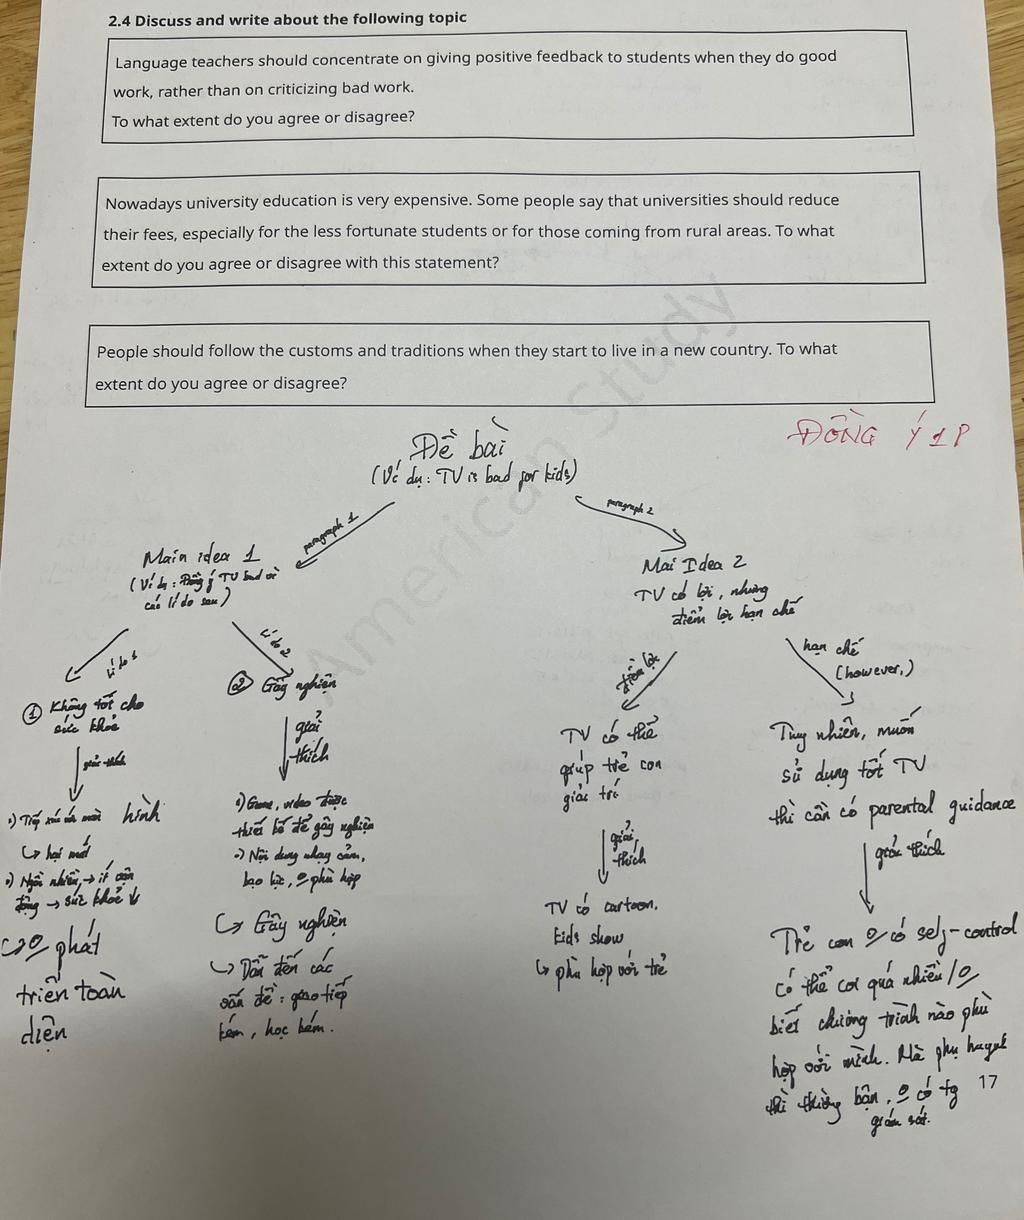 2.4 Discuss and write about the following topic
Language teachers should concentrate on giving positive feedback to students when they do good
work, rather than on criticizing bad work.
To what extent do you agree or disagree?
Nowadays university education is very expensive. Some people say that universities should reduce
their fees, especially for the less fortunate students or for those coming from rural areas. To what
extent do you agree or disagree with this statement?
People should follow the customs and traditions when they start to live in a new country. To what
extent do you agree or disagree?
American Study
ĐỒNG Ý 1P
Đề bài
(Ví dụ: TV is bad for kids)
paragraph 1
paragraph 2
Main idea 1
(Ví dụ: Đồng ý TV bad vì
các lí do sau)
lí do 1
lí do 2
① Không tốt cho
sức khỏe
giải thích
hình
↳ hại mắt
•) Ngồi nhiều, → ít vận
động → sức khỏe ↓
phát
triển toàn
diện
② Gây nghiện
giải
thích
•) Game, video được
thiết kế để gây nghiện
•) Nội dung nhạy cảm,
bạo lực, phù hợp
↳ Gây nghiện
↳ Dẫn đến các
vấn đề: giao tiếp
kém, học kém.
Mai Idea 2
TV có lợi, nhưng
điểm lợi hạn chế
điểm lợi
TV có thể
giúp trẻ con
giải trí
giải
thích
TV có cartoon,
kids show
↳ phù hợp với trẻ
hạn chế
(however,)
Tuy nhiên, muốn
sử dụng tốt TV
thì cần có parental guidance
giải thích
Trẻ con có self-control
có thể coi quá nhiều/
biết chương trình nào phù
hợp với mình. Mà phụ huynh
thì thường bận, có tg
giám sát.
17